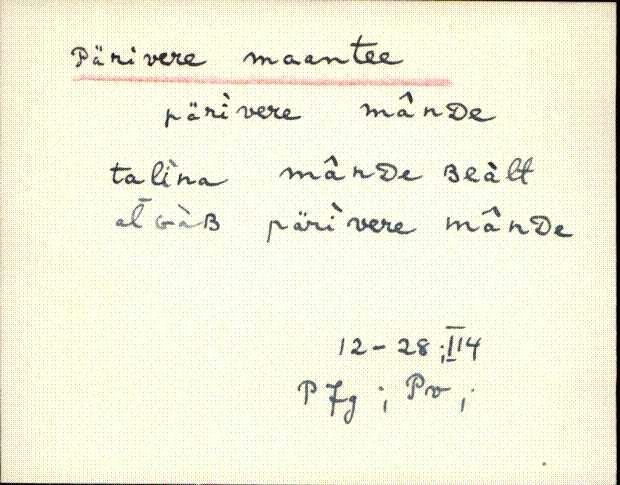 Pärivere maantee
pärìvere mânDe
talìna mânDe Beàlt
al̄GàB pärìvere mânDe
12-28; II 4
P Jg ; Pv ;